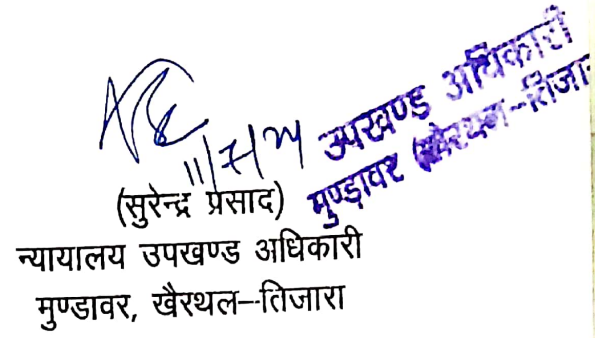 उपखण्ड अधिकारी
मुण्डावर (खैरथल-तिजारा
(सुरेन्द्र प्रसाद)
न्यायालय उपखण्ड अधिकारी
मुण्डावर, खैरथल-तिजारा